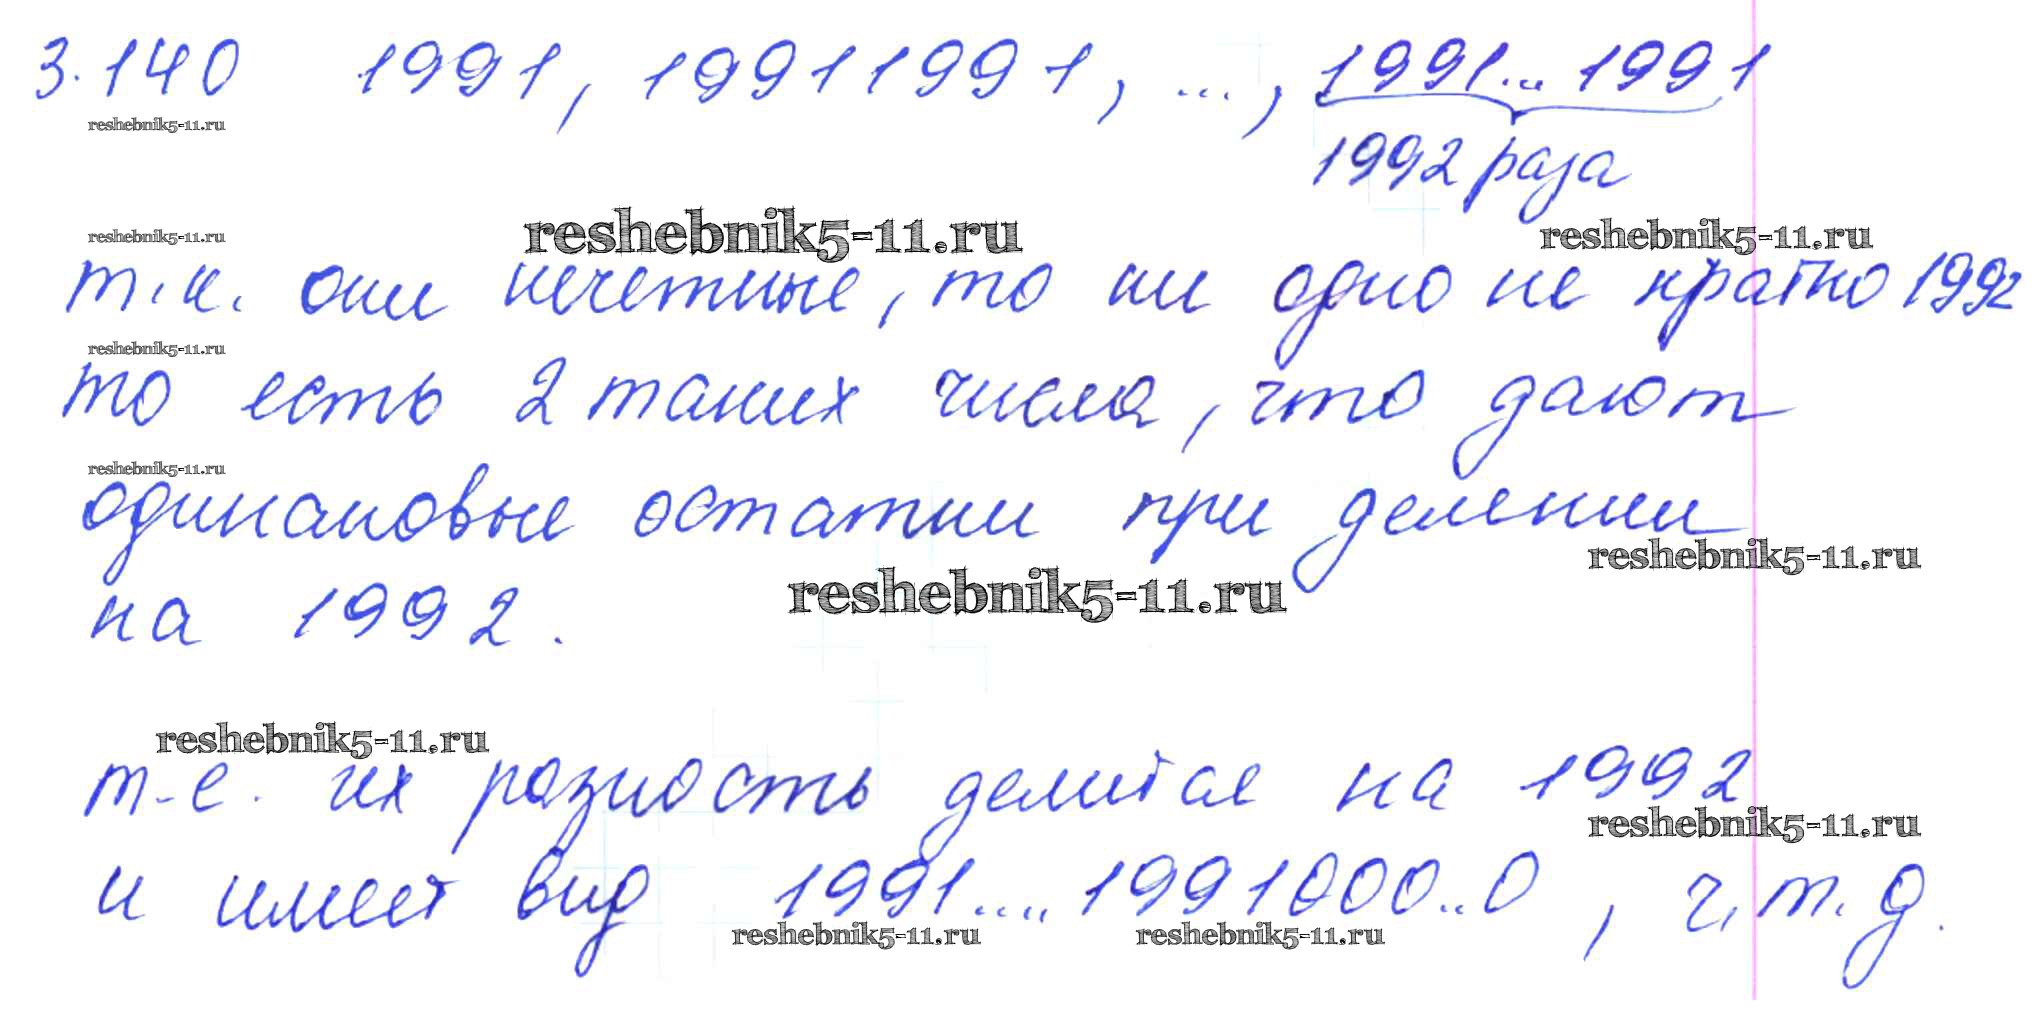 3.140 1991, 19911991, ..., 1991...1991
reshebnik5-11.ru
1992 раза
reshebnik5-11.ru
reshebnik5-11.ru
reshebnik5-11.ru
т.к. они нечетные, то ни одно не кратно 1992
reshebnik5-11.ru
то есть 2 таких числа, что дают
reshebnik5-11.ru
одинаковые остатки при делении
reshebnik5-11.ru
reshebnik5-11.ru
на 1992.
reshebnik5-11.ru
т.е. их разность делится на 1992
reshebnik5-11.ru
и имеет вид 1991....1991000..0, ч.т.д.
reshebnik5-11.ru
reshebnik5-11.ru